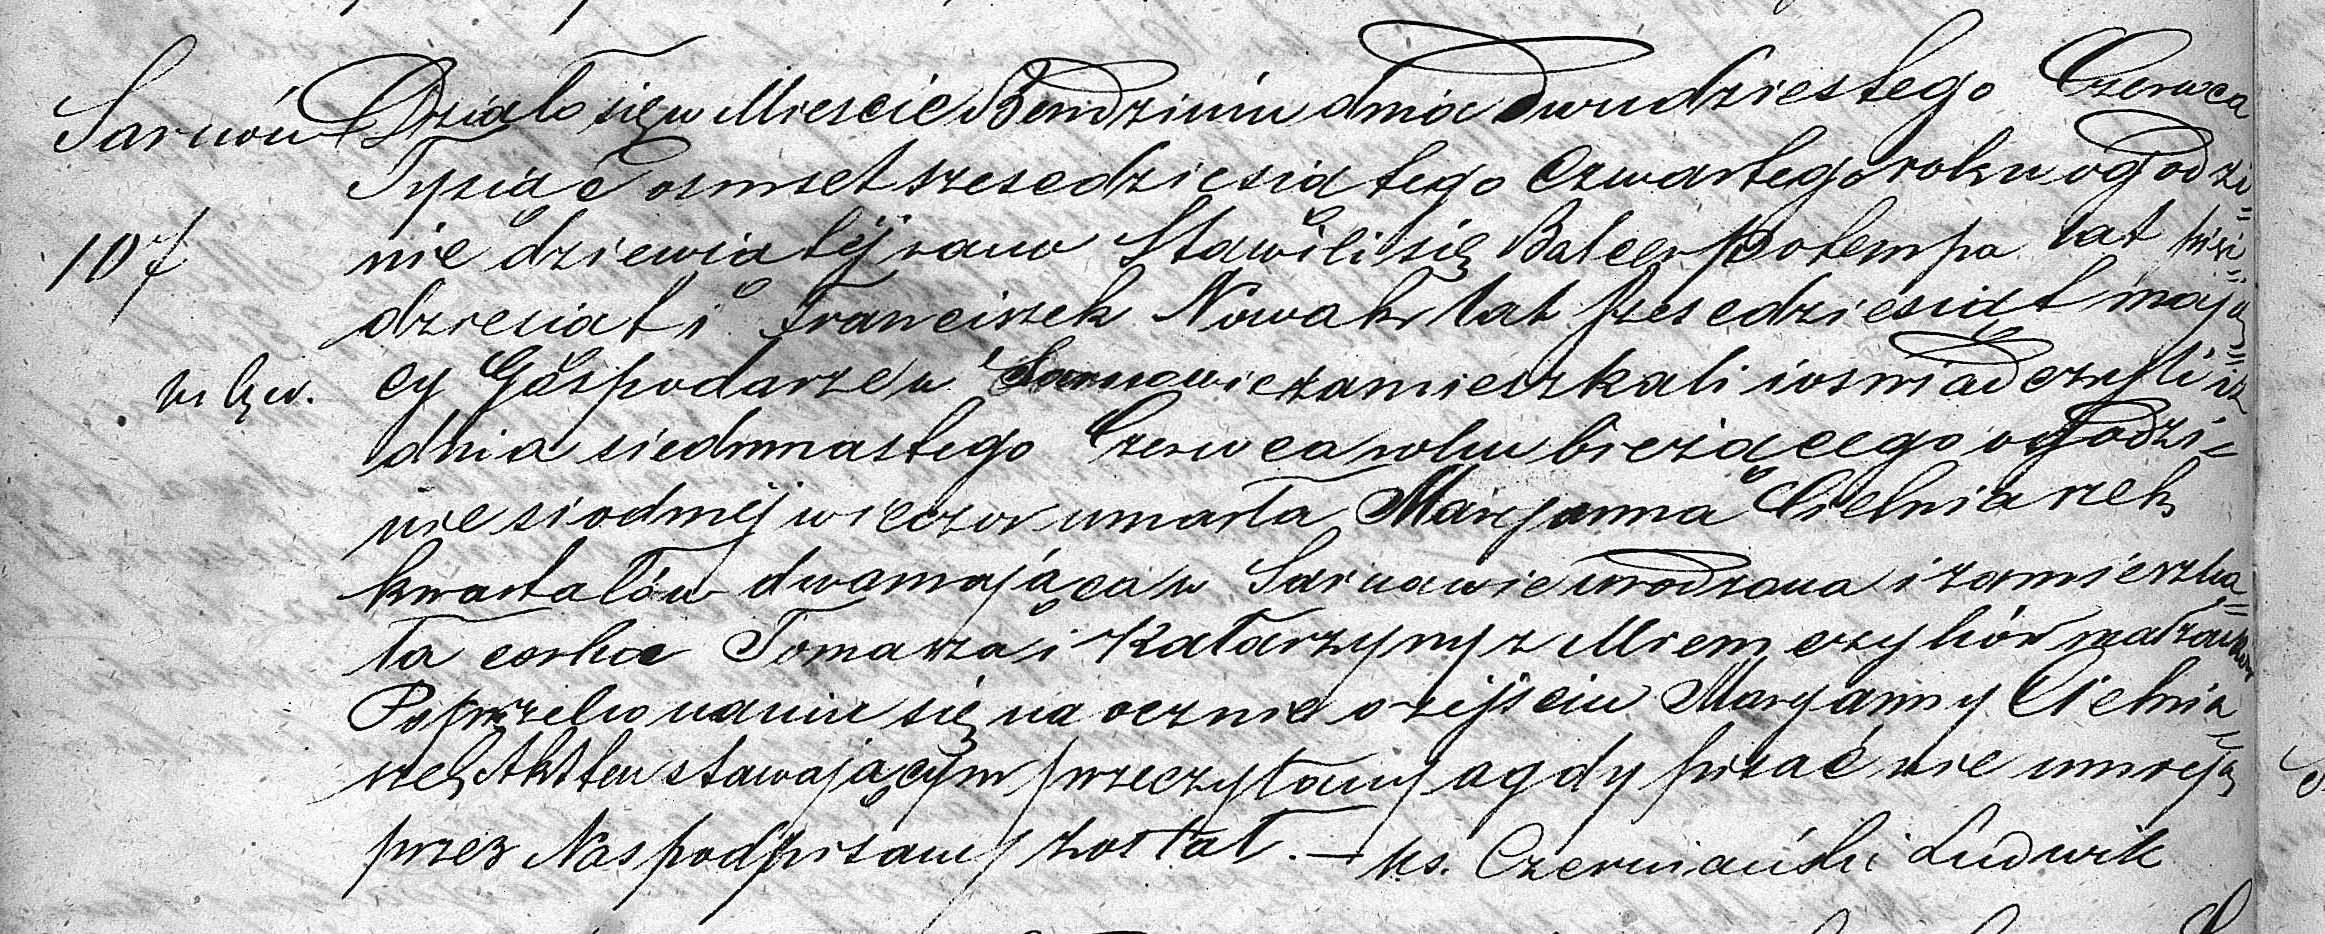 Sarnów Działo się w Miescie Bendzinie dnia dwudziestego Czerwca
Tysiąc osmset szescdziesiątego czwartego roku o godzi=
107 nie dziewiątéj rano Stawili się Balcer Potempa lat pięć=
dziesiąt i Franciszek Nowak lat szescdziesiąt mają=
cy Gospodarze w Sarnowie zamieszkali i oswiadczyli iż
dnia siedmnastego Czerwca roku bieżącego o godzi=
nie siodméj wieczor umarła Maryanna Cielniaszek
kwartałów dwa mająca w Sarnowie urodzona i zamieszka=
ła corka Tomasza i Katarzyny z Niemczyków małżonków
Po przekonaniu się naocznie o zejsciu Maryanny Cielnia=
szek Akt ten stawającym przeczytany a gdy pisać nie umieją
przez Nas podpisany został. — Ks. Czerniański Ludwik